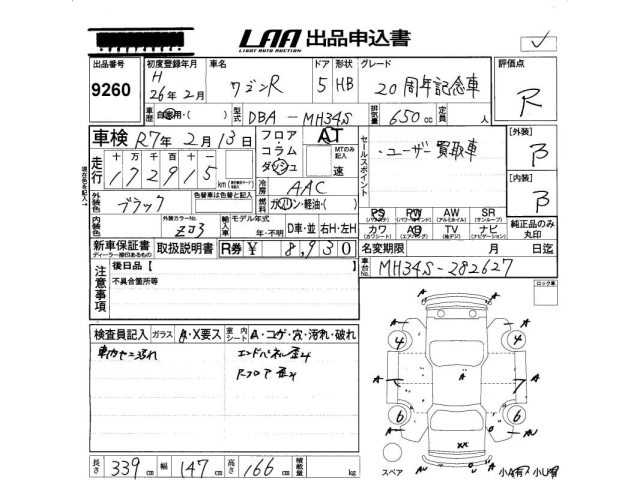 LAA 出品申込書
LIGHT AUTO AUCTION
出品番号 初度登録年月 車名 ドア 形状 グレード 評価点
9260 H 26年2月 ワゴンR 5 HB 20周年記念車 R
車歴 自家用・( ) 型式 DBA-MH34S 排気量 650cc 定員 人
車検 R7年2月13日 フロア・コラム ダッシュ AT MTのみ記入 速 セールスポイント ・ユーザー買取車 [外装] B
走行 十万千百十一 172915 km
冷房 AAC [内装] B
外装色 ブラック 色替車は色替と記入 燃料 ガソリン・軽油・( )
内装色 外装カラーNo. ZJ3 輸入車 モデル年式 年・不明 D車・並 右H・左H
PS PW AW SR
(パワステ) (パワーウインド) (アルミホイル) (サンルーフ)
カワ AB TV ナビ
(本革シート) (エアバッグ) (地デジ) (ナビゲーション)
純正品のみ丸印
新車保証書 取扱説明書 R券 ¥ 8,930 名変期限 月 日迄
ディーラー捺印あるもの
車台No. MH34S-282627
注意事項 後日品【 】
不具合箇所等
ロック車
検査員記入 ガラス A・X要ス 室内シート A・コゲ・穴・汚れ・破れ
エンドパネル歪み
Rフロア歪み
A A
4 4
A A A
6 6
XX
スペア AU AU 小A有 小U有
長さ 339cm 幅 147cm 高さ 166cm 積載量 kg
現在色を記入→